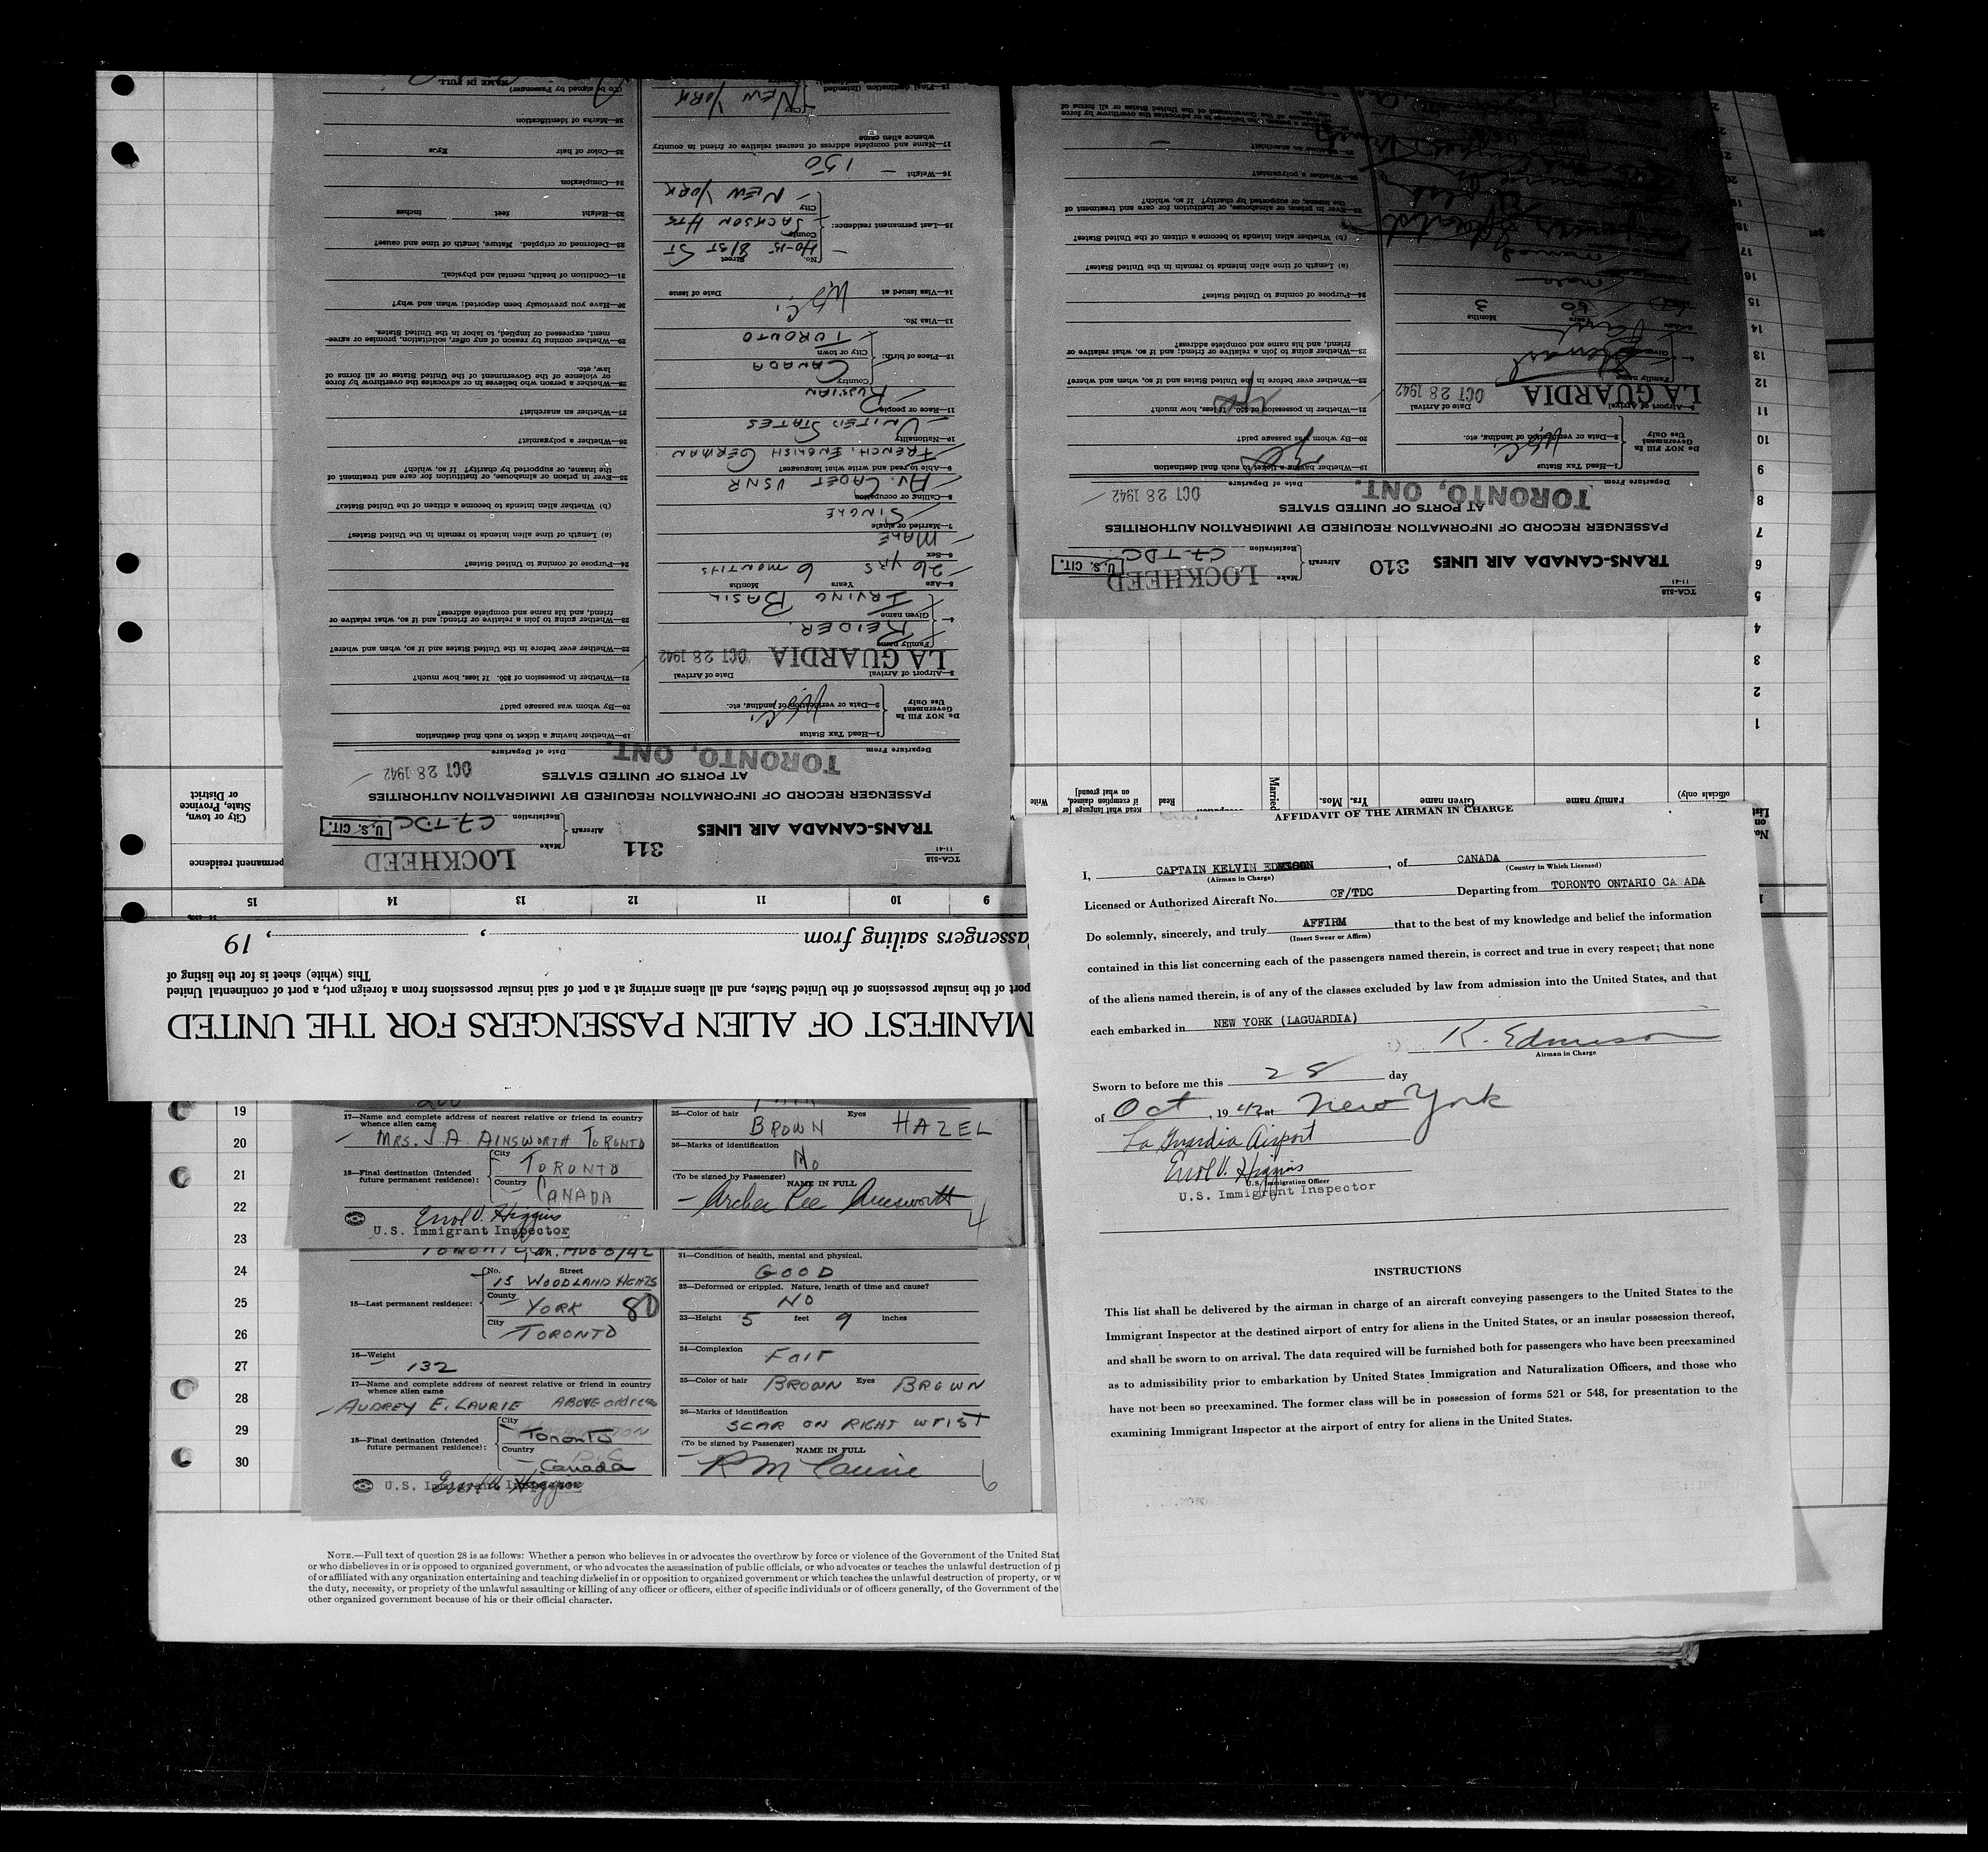 AFFIDAVIT OF THE AIRMAN IN CHARGE
I, CAPTAIN KELVIN , of CANADA
(Airman in Charge) (Country in Which Licensed)
Licensed or Authorized Aircraft No. CF/TDC Departing from TORONTO ONTARIO CA ADA
Do solemnly, sincerely, and truly AFFIRM that to the best of my knowledge and belief the information
(Insert Swear or Affirm)
contained in this list concerning each of the passengers named therein, is correct and true in every respect; that none
of the aliens named therein, is of any of the classes excluded by law from admission into the United States, and that
each embarked in NEW YORK (LAGUARDIA)
K. Edmison
Airman in Charge
Sworn to before me this 28 day
of Oct , 19 42 at New York
La Guardia Airport
Errol V. Higgins
U.S. Immigration Officer
U.S. Immigrant Inspector
INSTRUCTIONS
This list shall be delivered by the airman in charge of an aircraft conveying passengers to the United States to the
Immigrant Inspector at the destined airport of entry for aliens in the United States, or an insular possession thereof,
and shall be sworn to on arrival. The data required will be furnished both for passengers who have been preexamined
as to admissibility prior to embarkation by United States Immigration and Naturalization Officers, and those who
have not been so preexamined. The former class will be in possession of forms 521 or 548, for presentation to the
examining Immigrant Inspector at the airport of entry for aliens in the United States.
17—Name and complete address of nearest relative or friend in country
whence alien came
MRS. J. A. AINSWORTH TORONTO
18—Final destination (Intended
future permanent residence):
City
TORONTO
Country
CANADA
Errol V. Higgins
U.S. Immigrant Inspector
35—Color of hair Eyes
BROWN HAZEL
36—Marks of identification
No
(To be signed by Passenger)
NAME IN FULL
Archer Lee Ainsworth
4
15—Last permanent residence:
No. Street
15 WOODLAND HGHTS
County
YORK 80
City
TORONTO
16—Weight
132
17—Name and complete address of nearest relative or friend in country
whence alien came
AUDREY E. LAURIE ABOVE address
18—Final destination (Intended
future permanent residence):
City
Toronto
Country
Canada
U.S. Immigrant Inspector
Errol V. Higgins
31—Condition of health, mental and physical.
GOOD
32—Deformed or crippled. Nature, length of time and cause?
NO
33—Height 5 feet 9 inches
34—Complexion
FAIR
35—Color of hair BROWN Eyes BROWN
36—Marks of identification
SCAR ON RIGHT WRIST
(To be signed by Passenger)
NAME IN FULL
R M Laurie
6
19
20
21
22
23
24
25
26
27
28
29
30
NOTE.—Full text of question 28 is as follows: Whether a person who believes in or advocates the overthrow by force or violence of the Government of the United Stat
or who disbelieves in or is opposed to organized government, or who advocates the assassination of public officials, or who advocates or teaches the unlawful destruction of p
of or affiliated with any organization entertaining and teaching disbelief in or opposition to organized government or which teaches the unlawful destruction of property, or w
the duty, necessity, or propriety of the unlawful assaulting or killing of any officer or officers, either of specific individuals or of officers generally, of the Government of the
other organized government because of his or their official character.
MANIFEST OF ALIEN PASSENGERS FOR THE UNITED
port of the insular possessions of the United States, and all aliens arriving at a port of said insular possessions from a foreign port, a port of continental United
This (white) sheet is for the listing of
assengers sailing from , , 19
9 10 11 12 13 14 15
permanent residence
City or town, State, Province or District
No. on List
Family name
Given name
Yrs. Mos.
Married
Read
Read what language [or if exemption claimed, on what ground]
Write
1
2
3
4
5
6
7
8
9
10
11
12
13
14
15
16
17
18
TCA-518
11-41
TRANS-CANADA AIR LINES 311 Aircraft Make LOCKHEED
Registration CF-TDC U.S. CIT.
PASSENGER RECORD OF INFORMATION REQUIRED BY IMMIGRATION AUTHORITIES
AT PORTS OF UNITED STATES
TORONTO, ONT. OCT 28 1942
Departure From Date of Departure
Do NOT Fill In
Government
Use Only
1—Head Tax Status
2—Data or verification of landing, etc.
U.S.C.
3—Airport of Arrival Date of Arrival
LA GUARDIA OCT 28 1942
4—
Family name
REIDER
Given name
IRVING BASIL
5—Age Years Months
26 yrs 6 months
6—Sex
MALE
7—Married or single
SINGLE
8—Calling or occupation
AV. CADET USNR
9—Able to read and write what languages?
FRENCH, ENGLISH GERMAN
10—Nationality
UNITED STATES
11—Race or people
RUSSIAN
12—Place of birth:
Country
CANADA
City or town
TORONTO
13—Visa No.
14—Visa issued at Date of issue
U.S.C.
15—Last permanent residence:
No. Street
40-15 81ST ST
County
JACKSON HTS
City
NEW YORK
16—Weight
150
17—Name and complete address of nearest relative or friend in country
whence alien came
18—Final destination (Intended
City
NEW YORK
19—Whether having a ticket to such final destination
20—By whom was passage paid?
21—Whether in possession of $50. If less, how much?
22—Whether ever before in the United States and if so, when and where?
23—Whether going to join a relative or friend; and if so, what relative or
friend, and his name and complete address?
24—Purpose of coming to United States?
(a) Length of time alien intends to remain in the United States?
(b) Whether alien intends to become a citizen of the United States?
25—Ever in prison or almshouse, or institution for care and treatment of
the insane, or supported by charity? If so, which?
26—Whether a polygamist?
27—Whether an anarchist?
28—Whether a person who believes in or advocates the overthrow by force
or violence of the Government of the United States or all forms of
law, etc.
29—Whether coming by reason of any offer, solicitation, promise or agree-
ment, expressed or implied, to labor in the United States.
30—Have you previously been deported; when and why?
31—Condition of health, mental and physical.
32—Deformed or crippled. Nature, length of time and cause?
33—Height feet inches
34—Complexion
35—Color of hair Eyes
36—Marks of identification
(To be signed by Passenger)
NAME IN FULL
TCA-518
11-41
TRANS-CANADA AIR LINES 310 Aircraft Make LOCKHEED
Registration CF-TDC U.S. CIT.
PASSENGER RECORD OF INFORMATION REQUIRED BY IMMIGRATION AUTHORITIES
AT PORTS OF UNITED STATES
TORONTO, ONT. OCT 28 1942
Departure From Date of Departure
Do NOT Fill In
Government
Use Only
1—Head Tax Status
2—Data or verification of landing, etc.
U.S.C.
3—Airport of Arrival Date of Arrival
LA GUARDIA OCT 28 1942
Family name
Given name
5—Age Years Months
50 3
male
19—Whether having a ticket to such final destination
yes
20—By whom was passage paid?
21—Whether in possession of $50. If less, how much?
yes
22—Whether ever before in the United States and if so, when and where?
23—Whether going to join a relative or friend; and if so, what relative or
friend, and his name and complete address?
24—Purpose of coming to United States?
(a) Length of time alien intends to remain in the United States?
(b) Whether alien intends to become a citizen of the United States?
25—Ever in prison or almshouse, or institution for care and treatment of
the insane, or supported by charity? If so, which?
26—Whether a polygamist?
27—Whether an anarchist?